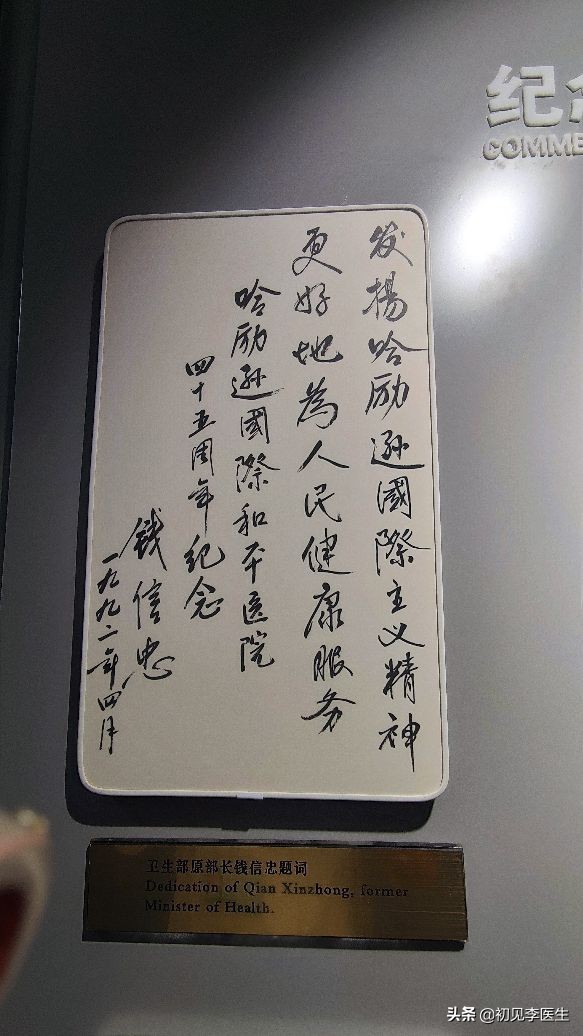 纪
COMME
发揚哈励逊國際主义精神
更好地為人民健康服务
哈励逊國際和平医院
四十五周年纪念
钱信忠
一九九二年四月
卫生部原部长钱信忠题词
Dedication of Qian Xinzhong, former
Minister of Health.
头条 @初见李医生